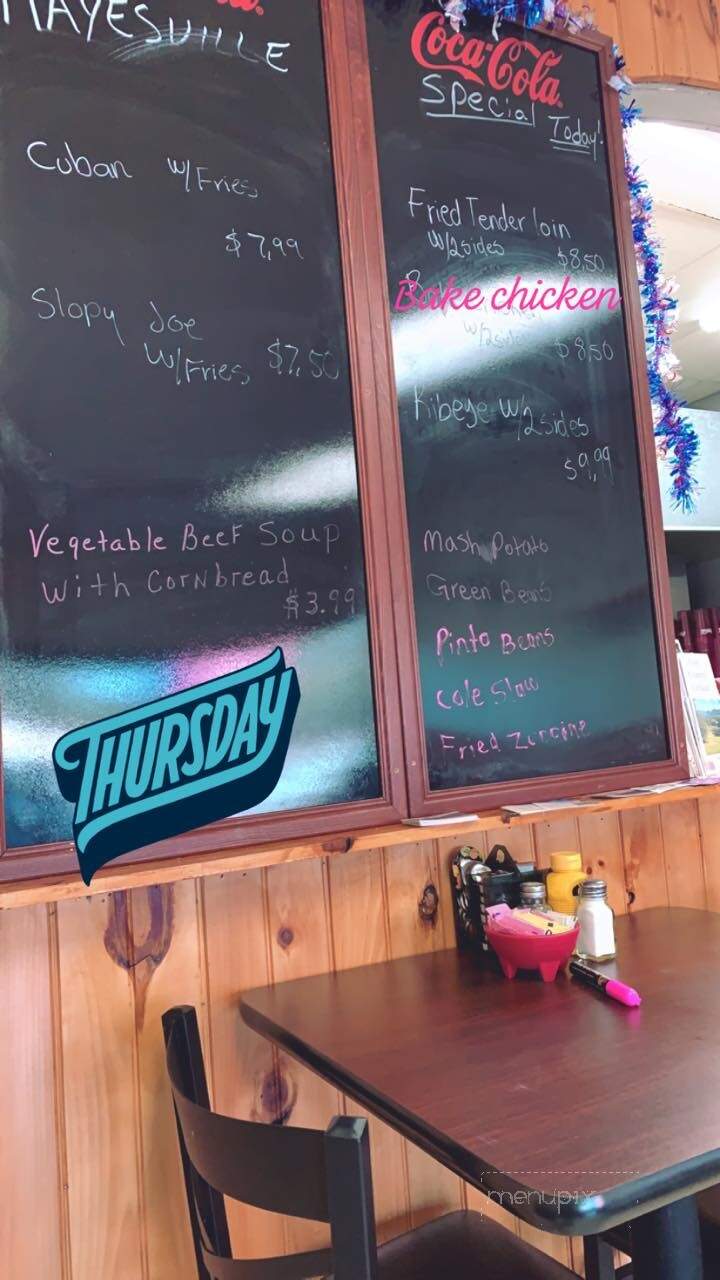 HAYESVILLE
Cuban w/Fries
$7,99
Slopy Joe
w/Fries $7,50
Vegetable Beef Soup
with Cornbread
$3.99
THURSDAY
Coca-Cola
Special
Today!
Fried Tender loin
w/2sides
$8,50
Bake chicken
w/2side
$8,50
Ribeye w/2sides
$9,99
Mash Potato
Green Beans
Pinto Beans
Cole Slaw
Fried
menupix